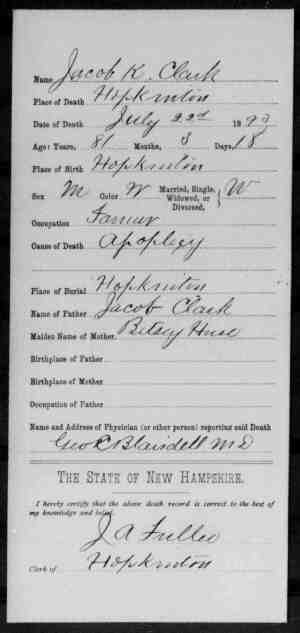 Name Jacob K. Clark
Place of Death Hopkinton
Date of Death July 22d 1893
Age: Years, 81 Months, 3 Days, 18
Place of Birth Hopkinton
Sex M Color W Married, Single, Widowed, or Divorced. } W
Occupation Farmer
Cause of Death Apoplexy
Place of Burial Hopkinton
Name of Father Jacob Clark
Maiden Name of Mother Betsey
Birthplace of Father
Birthplace of Mother
Occupation of Father
Name and Address of Physician (or other person) reporting said Death
Geo C Blaisdell MD
THE STATE OF NEW HAMPSHIRE.
I hereby certify that the above death record is correct to the best of
my knowledge and belief.
J A Fuller
Clerk of Hopkinton